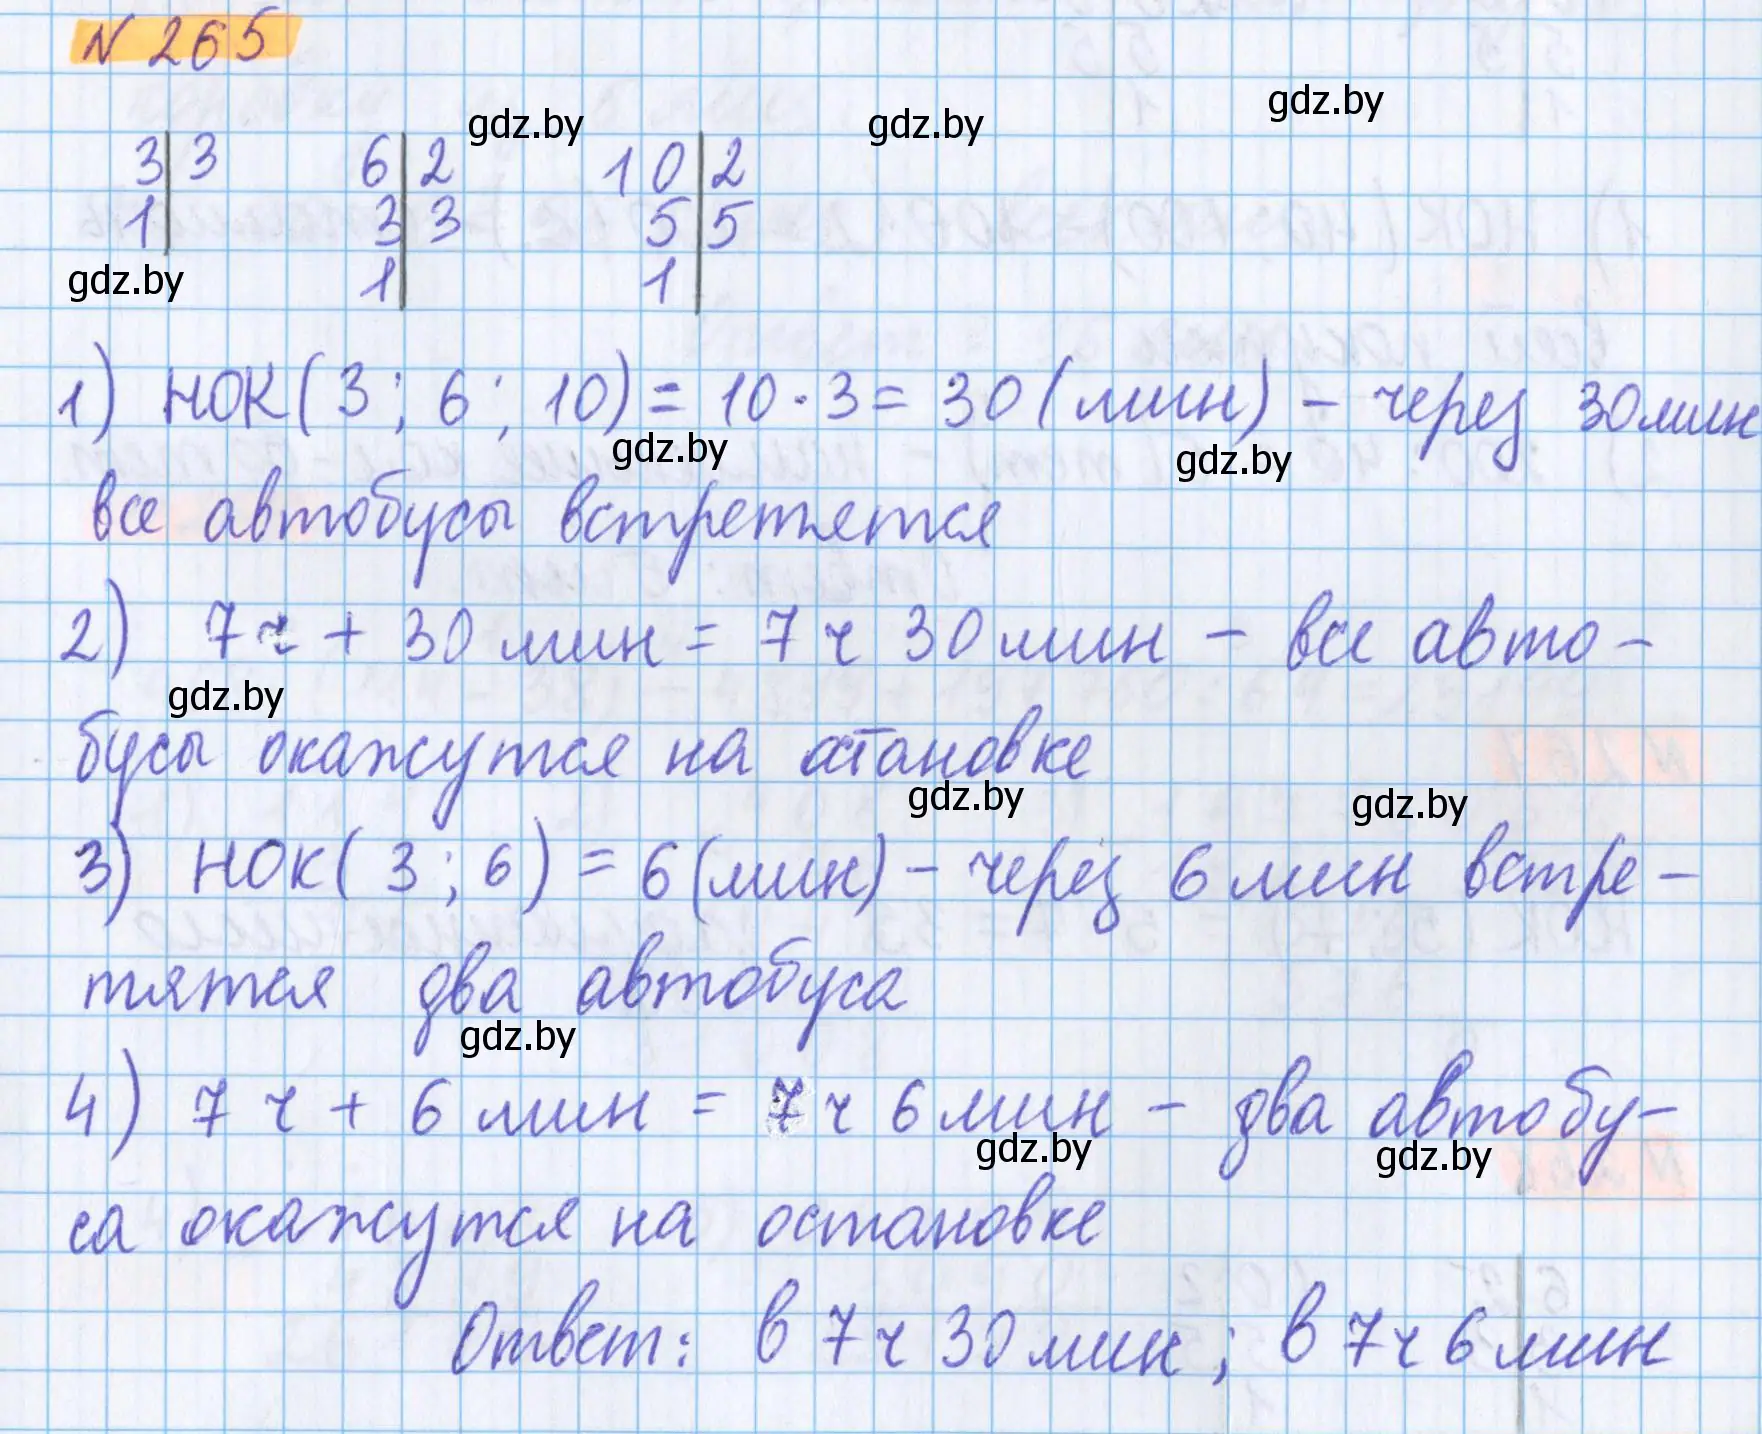 N 265
gdz.by gdz.by gdz.by
3 | 3 6 | 2 10 | 2
1 | 3 | 3 5 | 5
gdz.by 1 | 1 |
1) НОК(3; 6; 10) = 10 · 3 = 30 (мин) – через 30 мин
gdz.by gdz.by
все автобусы встретятся
2) 7 ч + 30 мин = 7 ч 30 мин – все авто-
gdz.by
бусы окажутся на остановке
gdz.by gdz.by
3) НОК(3; 6) = 6 (мин) – через 6 мин встре-
тятся два автобуса
gdz.by
4) 7 ч + 6 мин = 7 ч 6 мин – два автобу-
gdz.by gdz.by
са окажутся на остановке
Ответ: в 7 ч 30 мин; в 7 ч 6 мин